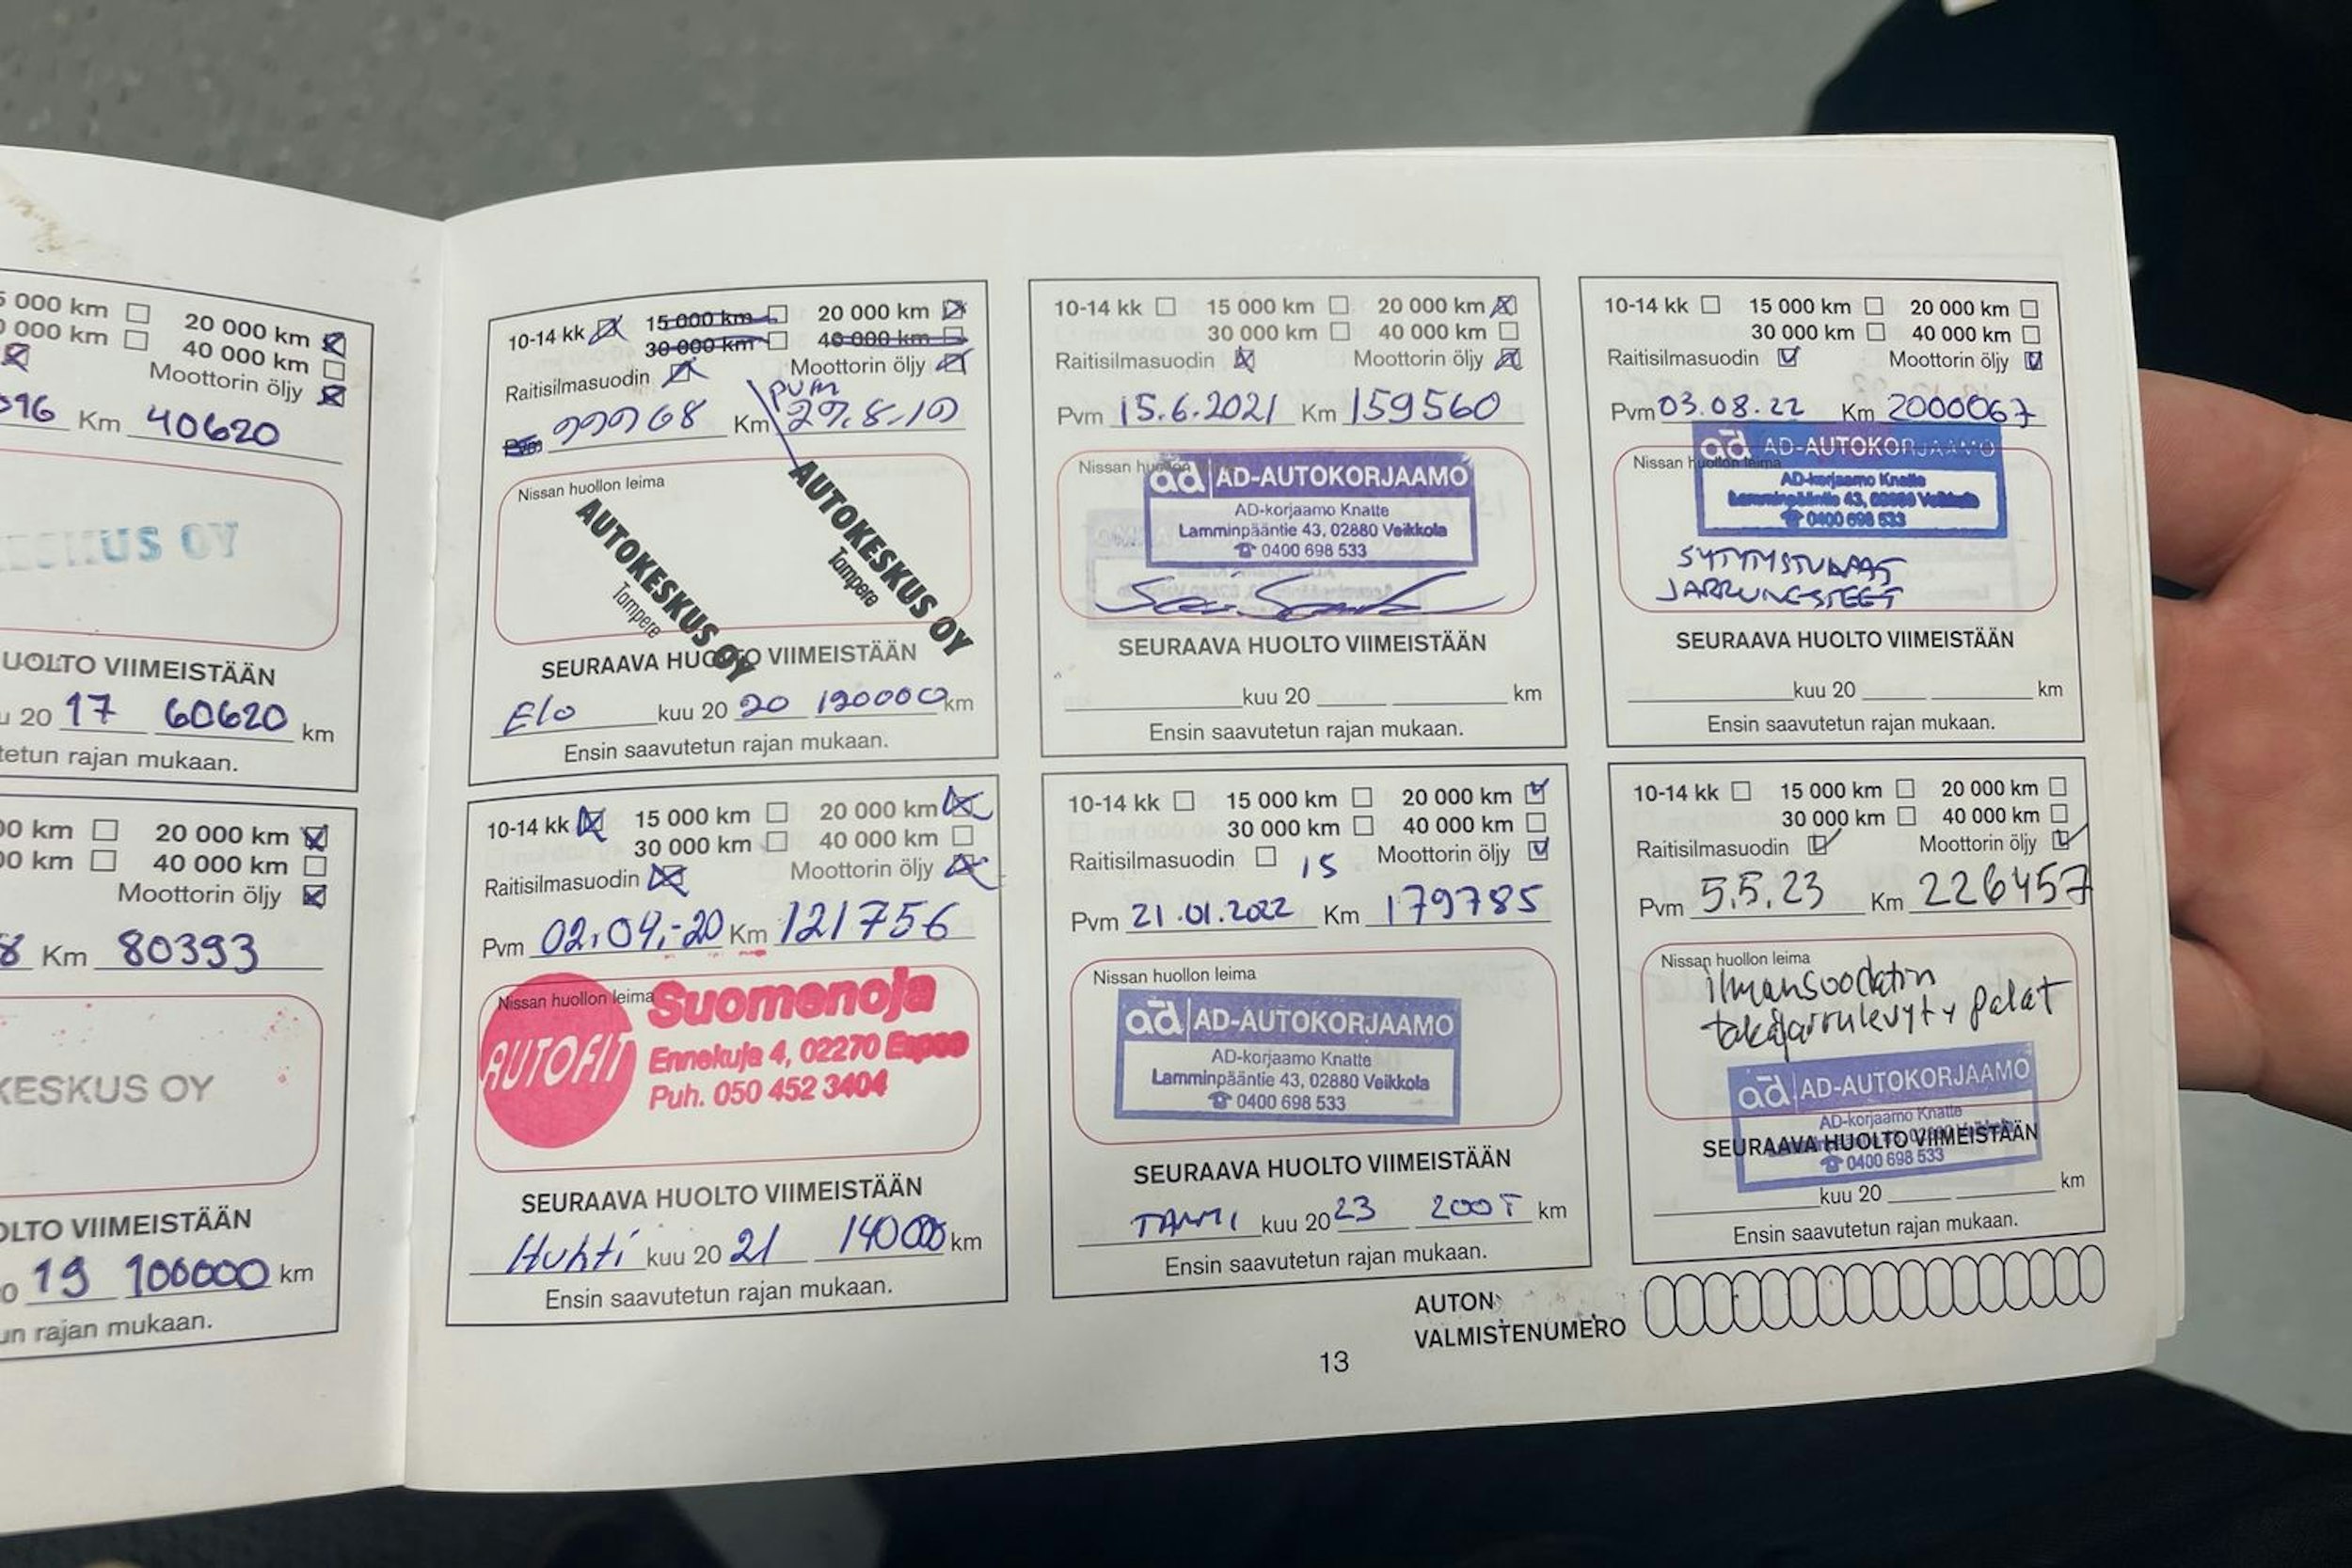 5 000 km 20 000 km
0 000 km 40 000 km
Moottorin öljy
Km 40620
KUS OY
UOLTO VIIMEISTÄÄN
u 20 17 60620 km
tetun rajan mukaan.
00 km 20 000 km
00 km 40 000 km
Moottorin öljy
8 Km 80393
KESKUS OY
OLTO VIIMEISTÄÄN
0 19 100000 km
un rajan mukaan.
10-14 kk 15 000 km 20 000 km
30 000 km 40 000 km
Raitisilmasuodin Moottorin öljy
pvm
Pvm 99968 Km 27.8.19
Nissan huollon leima
AUTOKESKUS OY
Tampere
AUTOKESKUS OY
Tampere
SEURAAVA HUOLTO VIIMEISTÄÄN
Elo kuu 20 20 120000 km
Ensin saavutetun rajan mukaan.
10-14 kk 15 000 km 20 000 km
30 000 km 40 000 km
Raitisilmasuodin Moottorin öljy
Pvm 02.04.-20 Km 121756
Nissan huollon leima
AUTOFIT
Suomenoja
Ennekuja 4, 02270 Espoo
Puh. 050 452 3404
SEURAAVA HUOLTO VIIMEISTÄÄN
Huhti kuu 20 21 140000 km
Ensin saavutetun rajan mukaan.
10-14 kk 15 000 km 20 000 km
30 000 km 40 000 km
Raitisilmasuodin Moottorin öljy
Pvm 15.6.2021 Km 159560
Nissan huollon leima
ad AD-AUTOKORJAAMO
AD-korjaamo Knatte
Lamminpääntie 43, 02880 Veikkola
☎ 0400 698 533
SEURAAVA HUOLTO VIIMEISTÄÄN
kuu 20 km
Ensin saavutetun rajan mukaan.
10-14 kk 15 000 km 20 000 km
30 000 km 40 000 km
Raitisilmasuodin 15 Moottorin öljy
Pvm 21.01.2022 Km 179785
Nissan huollon leima
ad AD-AUTOKORJAAMO
AD-korjaamo Knatte
Lamminpääntie 43, 02880 Veikkola
☎ 0400 698 533
SEURAAVA HUOLTO VIIMEISTÄÄN
TAMMI kuu 20 23 200T km
Ensin saavutetun rajan mukaan.
10-14 kk 15 000 km 20 000 km
30 000 km 40 000 km
Raitisilmasuodin Moottorin öljy
Pvm 03.08.22 Km 2000067
Nissan huollon leima
ad AD-AUTOKORJAAMO
AD-korjaamo Knatte
Lamminpääntie 43, 02880 Veikkola
☎ 0400 698 533
SYTYTYSTULPAT
JARRUNESTEET
SEURAAVA HUOLTO VIIMEISTÄÄN
kuu 20 km
Ensin saavutetun rajan mukaan.
10-14 kk 15 000 km 20 000 km
30 000 km 40 000 km
Raitisilmasuodin Moottorin öljy
Pvm 5.5.23 Km 226457
Nissan huollon leima
ilmansuodatin
takajarrulevyt + palat
ad AD-AUTOKORJAAMO
AD-korjaamo Knatte
SEURAAVA HUOLTO VIIMEISTÄÄN
☎ 0400 698 533
kuu 20 km
Ensin saavutetun rajan mukaan.
AUTON
VALMISTENUMERO
13